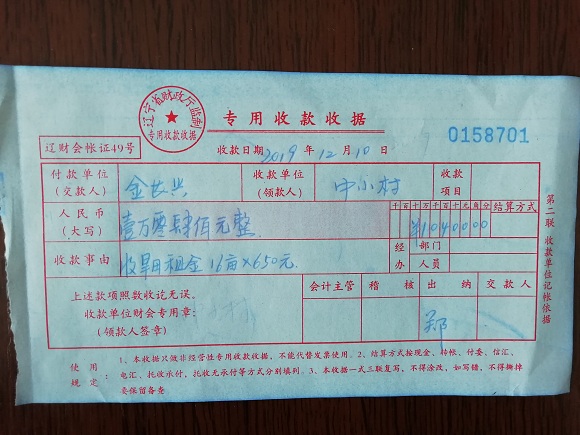 辽宁省财政厅监制
专用收款收据
专用收款收据
0158701
辽财会帐证49号
收款日期 2019 年 12 月 10 日
付款单位(交款人) 金长兴 收款单位(领款人) 中小村 收款项目
人民币(大写) 壹万零肆佰元整 千百十万千百十元角分 结算方式
¥1040000
收款事由 收旱田租金 16亩×650元. 经办 部门 人员
上述款项照数收讫无误。 会计主管 稽核 出纳 交款人
收款单位财会专用章:
(领款人签章) 郑
第二联 收款单位记帐依据
使用规定: 1、本收据只做非经营性专用收款收据,不能代替发票使用。2、结算方式按现金、转帐、付委、信汇、
电汇、托收承付、托收无承付等方式分别填列。3、本收据一式三联复写,不得涂改,如写错,不得撕掉
要保留备查。